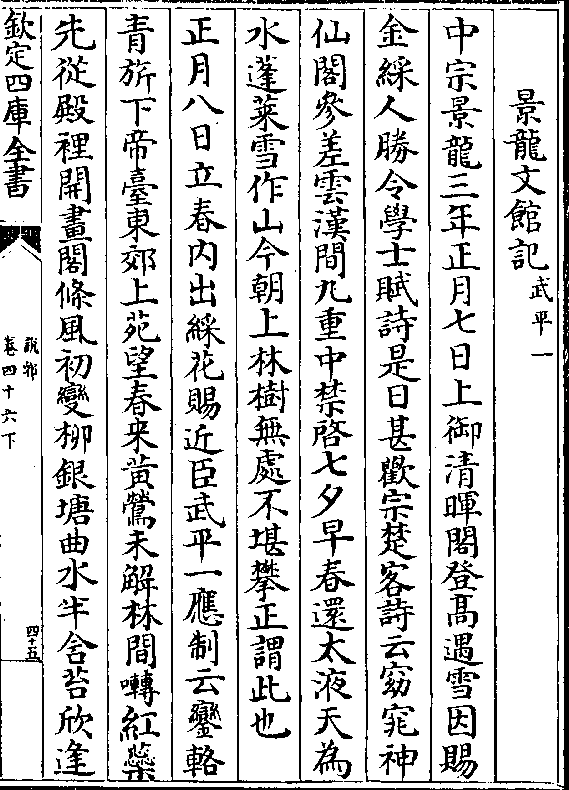 景龍文館記武平一
中宗景龍三年正月七日上御清暉閣登髙遇雪因賜
金綵人勝令學士賦詩是日甚歡宗楚客詩云窈窕神
仙閣參差雲漢間九重中禁啓七夕早春還太液天為
水蓬萊雪作山今朝上林樹無處不堪攀正謂此也
正月八日立春内出綵花賜近臣武平一應制云鑾輅
青旂下帝臺東郊上苑望春來黃鶯未解林間囀紅蘂
先從殿裡開畫閣條風初變柳銀塘曲水半含苔欣逢
欽定四庫全書
說郛
卷四十六下
四十五